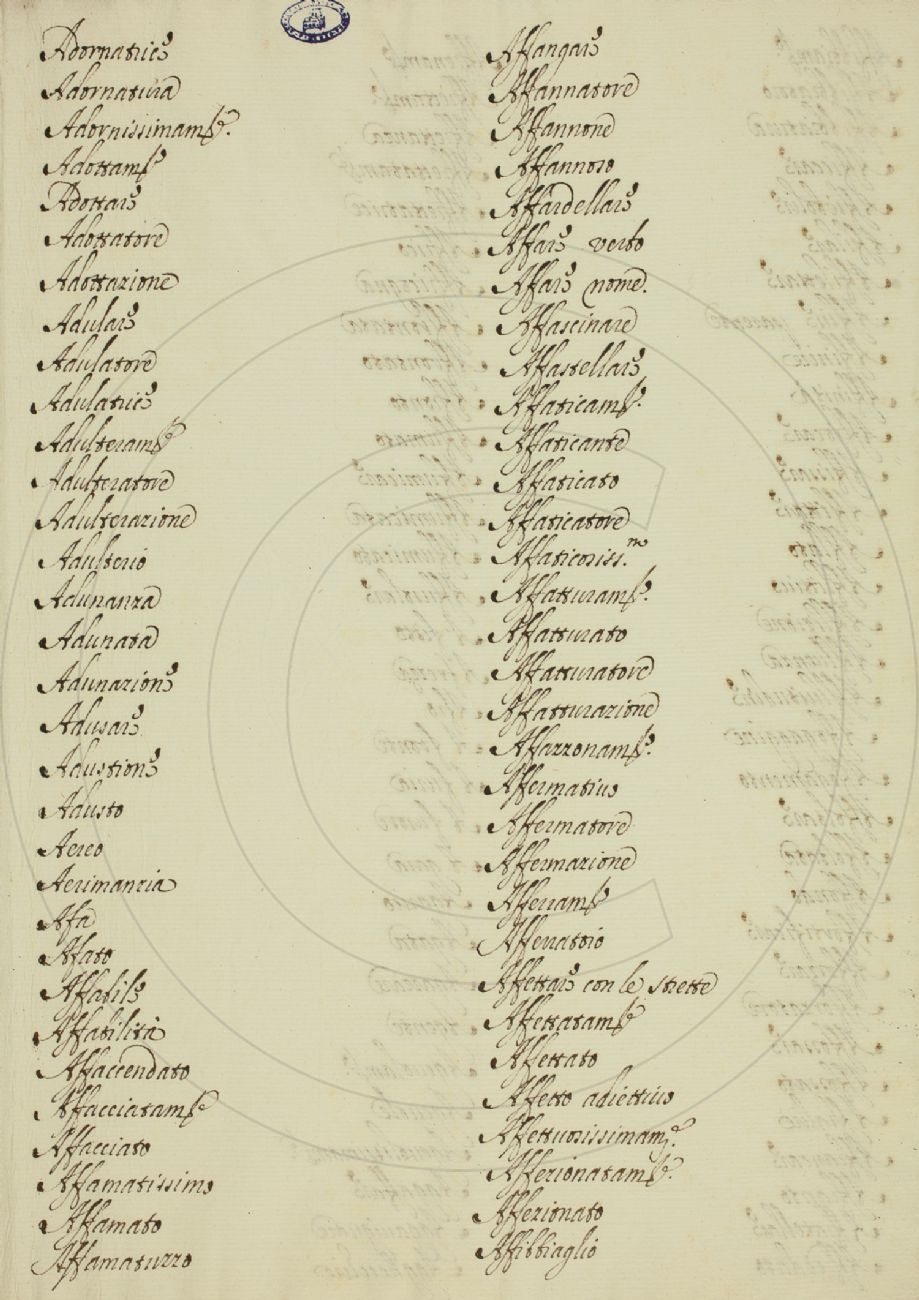 Adornatrice
Adornatura
Adornissimam.te
Adottam.te
Adottare
Adottatore
Adottazione
Adulare
Adulatore
Adulatrice
Adulteram.te
Adulteratore
Adulterazione
Adulterio
Adunanza
Adunata
Adunazione
Adusare
Adustione
Adusto
Aereo
Aerimanzia
Afa
Afato
Affabile
Affabilità
Affaccendato
Affacciatam.te
Affacciato
Affamatissimo
Affamato
Affamatuzzo
Affangare
Affannatore
Affannone
Affannoso
Affardellare
Affare verbo
Affare nome.
Affascinare
Affastellare
Affaticam.te
Affaticante
Affaticato
Affaticatore
Affaticosiss.mo
Affatturam.te
Affatturato
Affatturatore
Affatturazione
Affazzonam.te
Affermativo
Affermatore
Affermazione
Afferram.te
Afferratoio
Affettare con le strette
Affettatam.te
Affettato
Affetto adiettivo
Affettuosissimam.te
Affezionatam.te
Affezionato
Affibbiaglio